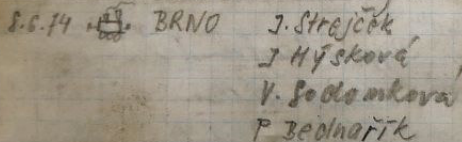 8.6.74 BRNO J. Strejček
J Hýsková
V. Sodomková
P Bednařík